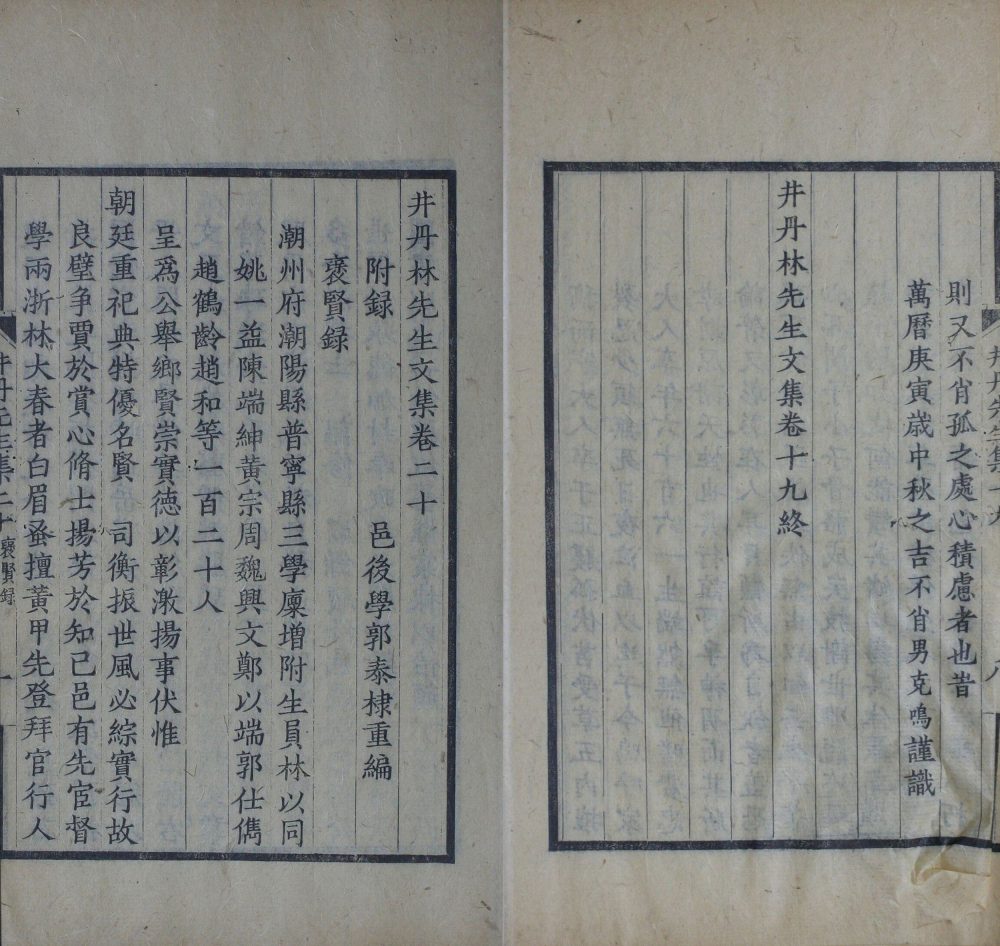 井丹先生集
則又不肖孤之處心積慮者也昔
萬曆庚寅歲中秋之吉不肖男克鳴謹識
井丹林先生文集卷十九終
井丹林先生文集卷二十
邑後學郭泰棣重編
附録
褒賢録
潮州府潮陽縣普寧縣三學廩增附生員林以同
姚一益陳端紳黃宗周魏興文鄭以端郭仕儁
趙鶴齡趙和等一百二十人
呈爲公舉鄉賢崇實德以彰激揚事伏惟
朝廷重祀典特優名賢 司衡振世風必綜實行故
良璧争賈於賞心脩士揚芳於知己邑有先宦督
學兩浙林大春者白眉蚤擅黃甲先登拜官行人
井丹先生集二十 褒賢録 一